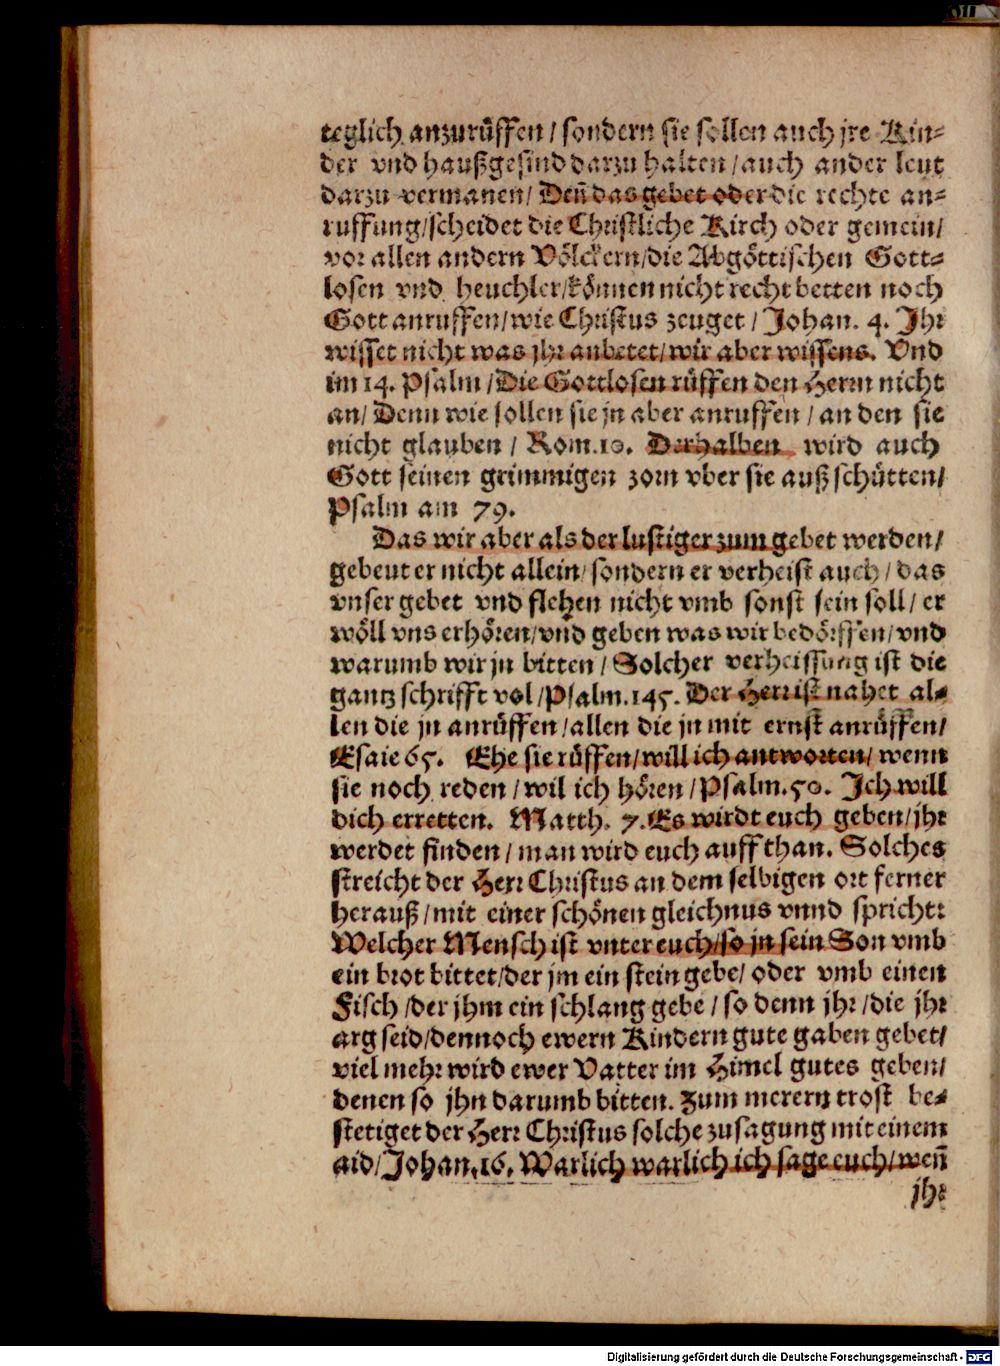 teglich anzurüffen / sondern sie sollen auch jre Kin-
der vnd haußgesind darzu halten / auch ander leut
darzu vermanen / Deñ das gebet oder die rechte an-
ruffung / scheidet die Christliche Kirch oder gemein /
vor allen andern Völckern / die Abgöttischen Gott-
losen vnd heuchler / können nicht recht betten noch
Gott anruffen / wie Christus zeuget / Johan. 4. Jhr
wisset nicht was jhr anbetet / wir aber wissens. Vnd
im 14. Psalm / Die Gottlosen rüffen den Herrn nicht
an / Denn wie sollen sie jn aber anruffen / an den sie
nicht glauben / Rom. 10. Derhalben wird auch
Gott seinen grimmigen zorn vber sie auß schütten /
Psalm am 79.
Das wir aber als der lustiger zum gebet werden /
gebeut er nicht allein / sondern er verheist auch / das
vnser gebet vnd flehen nicht vmb sonst sein soll / er
wöll vns erhören / vnd geben was wir bedörffen / vnd
warumb wir jn bitten / Solcher verheissung ist die
gantz schrifft vol / Psalm. 145. Der Herr ist nahet al-
len die jn anrüffen / allen die jn mit ernst anrüffen /
Esaie 65. Ehe sie rüffen / will ich antworten / wenn
sie noch reden / wil ich hören / Psalm. 50. Jch will
dich erretten. Matth. 7. Es wirdt euch geben / jhr
werdet finden / man wird euch auff than. Solches
streicht der Herr Christus an dem selbigen ort ferner
herauß / mit einer schönen gleichnus vnnd spricht:
Welcher Mensch ist vnter euch / so jn sein Son vmb
ein brot bittet / der jm ein stein gebe / oder vmb einen
Fisch / der jhm ein schlang gebe / so denn jhr / die jhr
arg seid / dennoch ewern Kindern gute gaben gebet /
viel mehr wird ewer Vatter im Himel gutes geben /
denen so jhn darumb bitten. Zum merern trost be-
stetiget der Herr Christus solche zusagung mit einem
aid / Johan. 16. Warlich warlich ich sage euch / weñ
jhr
Digitalisierung gefördert durch die Deutsche Forschungsgemeinschaft - DFG